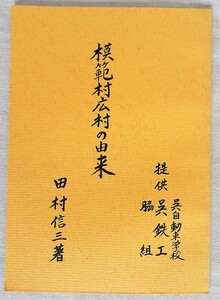 模範村広村の由来
呉自動車学校
提供 呉鉄工
脇組
田村信三著